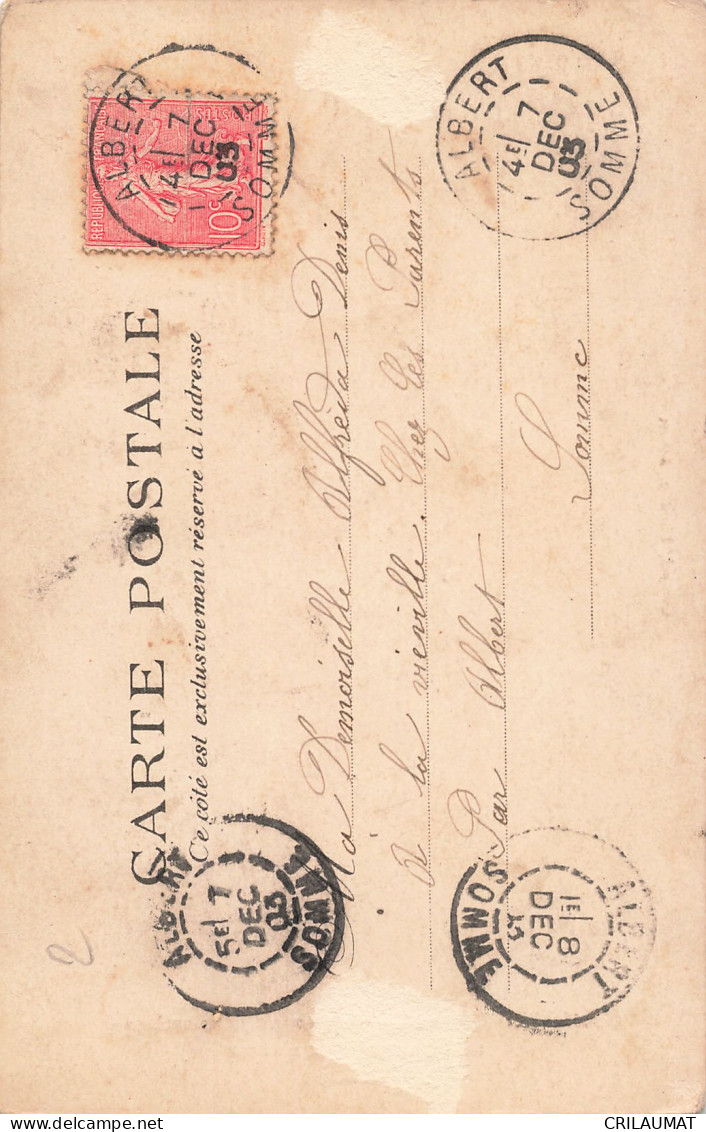 CARTE POSTALE
Ce côté est exclusivement réservé à l'adresse
REPUBLIQUE FRANÇAISE
POSTES
10c
ALBERT
4E 7
DEC
03
SOMME
ALBERT
4E 7
DEC
03
SOMME
Ma Demoiselle Alfréda Denis
A la vieville Chez les Parents
Par Albert
Somme
ALBERT
5E 7
DEC
03
SOMME
ALBERT
1E 8
DEC
SOMME
2
CRILAUMAT